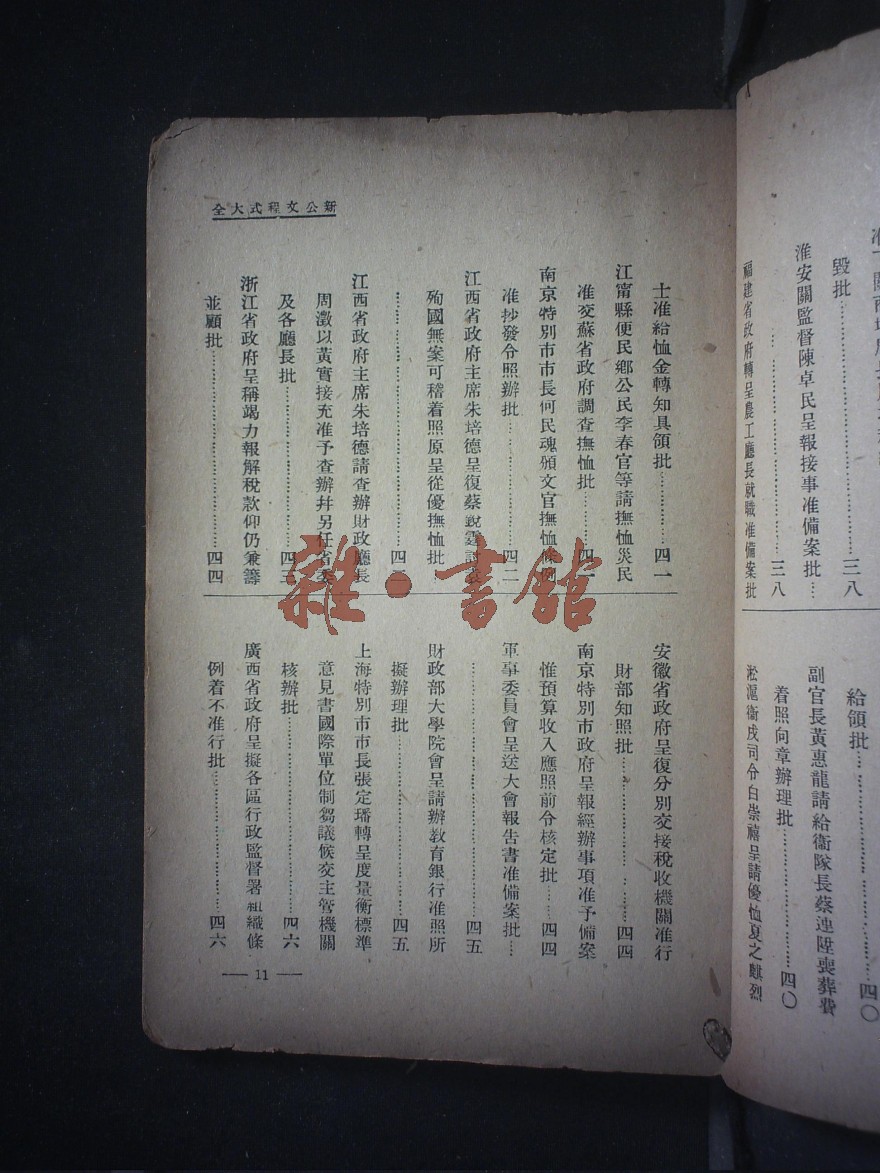 毀批……三八
淮安關監督陳卓民呈報接事准備案批…
……三八
福建省政府轉呈農工廳長就職准備案批
給領批……四〇
副官長黃惠龍請給衞隊長蔡連陞喪葬費
着照向章辦理批……四〇
淞滬衞戍司令白崇禧呈請優恤夏之麒烈
新公文程式大全
士准給恤金轉知具領批……四一
江甯縣便民鄉公民李春官等請撫恤災民
准交蘇省政府調查撫恤批……四一
南京特別市市長何民魂頒文官撫恤條例
准抄發令照辦批……四二
江西省政府主席朱培德呈復蔡銳霆
殉國無案可稽着照原呈從優撫恤批
……四二
江西省政府主席朱培德請查辦財政廳長
周澂以黃實接充准予查辦并另任省委
及各廳長批……四三
浙江省政府呈稱竭力報解稅款仰仍兼籌
並顧批……四四
安徽省政府呈復分別交接稅收機關准行
財部知照批……四四
南京特別市政府呈報經辦事項准予備案
惟預算收入應照前令核定批……四四
軍事委員會呈送大會報告書准備案批…
……四五
財政部大學院會呈請辦教育銀行准照所
擬辦理批……四五
上海特別市市長張定璠轉呈度量衡標準
意見書國際單位制芻議候交主管機關
核辦批……四六
廣西省政府呈擬各區行政監督署組織條
例着不准行批……四六
— 11 —
雜·書館